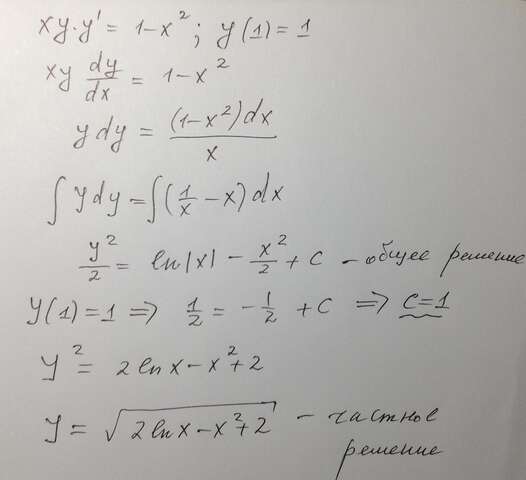 xy·y' = 1-x²; y(1) = 1
xy dy/dx = 1-x²
y dy = (1-x²)dx/x
∫ y dy = ∫(1/x - x) dx
y²/2 = ln|x| - x²/2 + C - общее решение
y(1) = 1 ⇒ 1/2 = -1/2 + C ⇒ C=1
y² = 2 ln x - x² + 2
y = √(2 ln x - x² + 2) - частное
решение